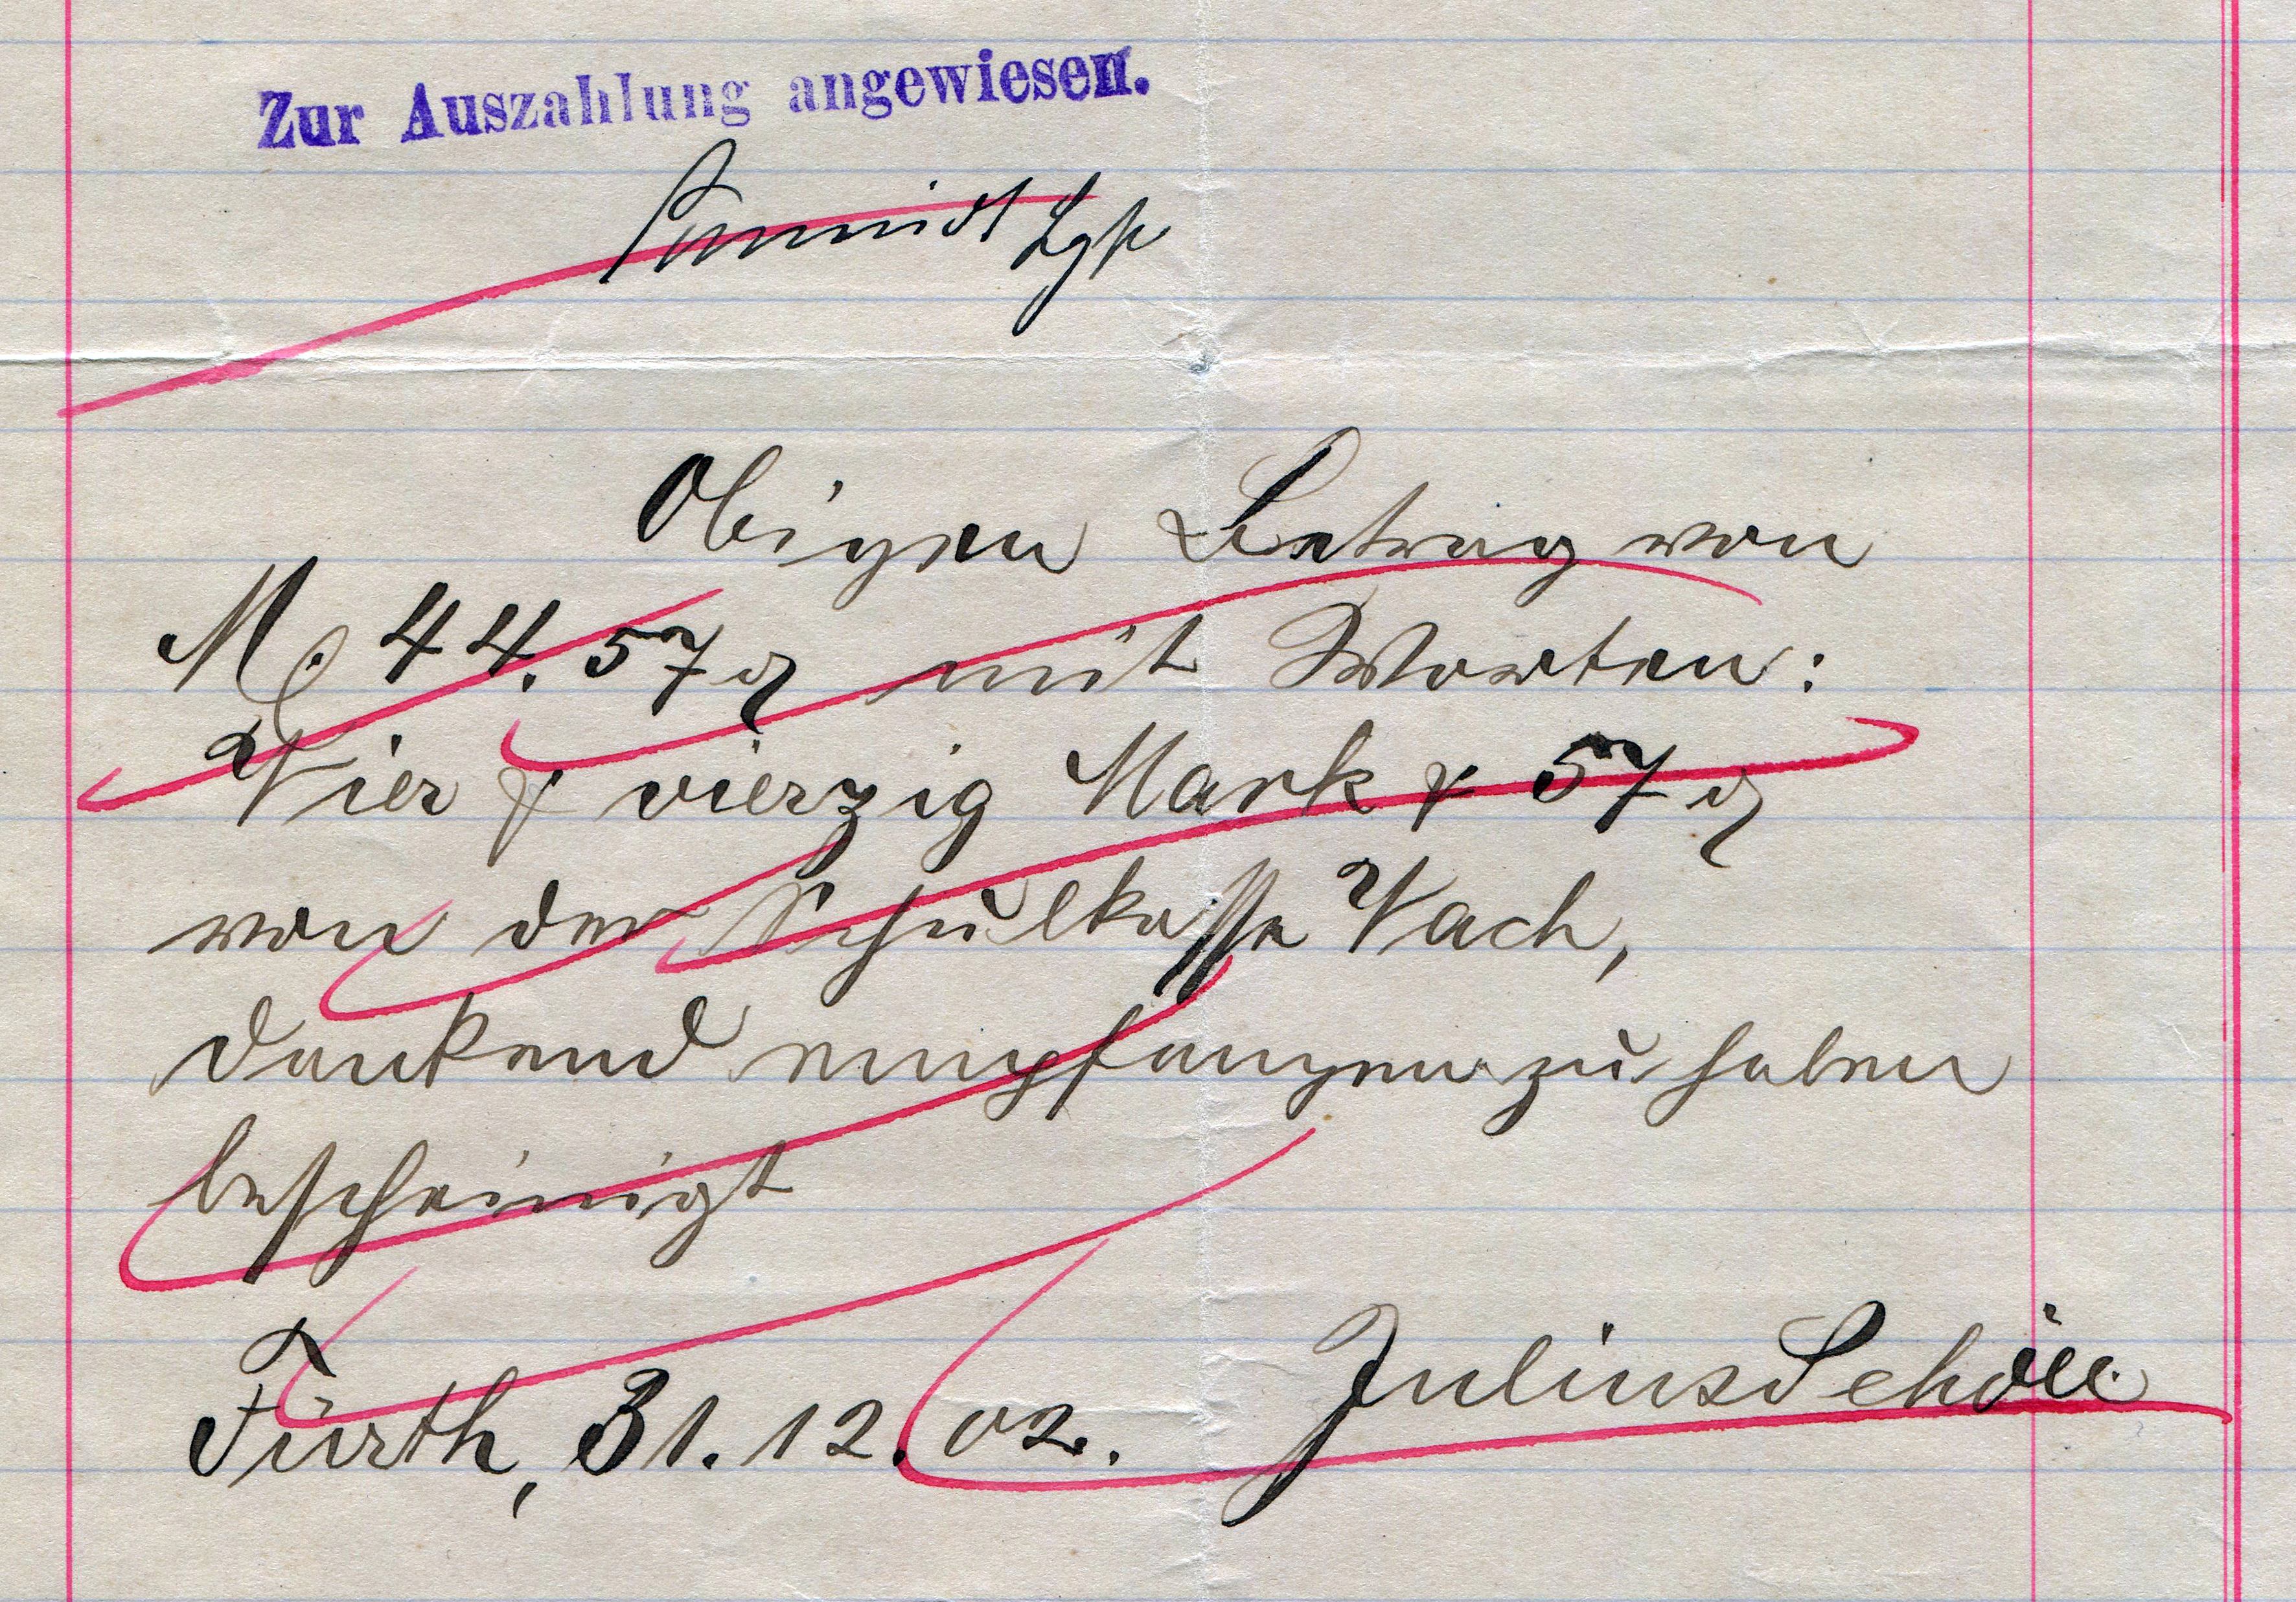 Zur Auszahlung angewiesen.
Schmidt
Obigen Betrag von
M. 44.57 ₰ mit Worten:
Vier & vierzig Mark & 57 ₰
von der Schulkassa Vach,
dankend empfangen zu haben
bescheinigt
Fürth, 31.12.02. Julius Schöll